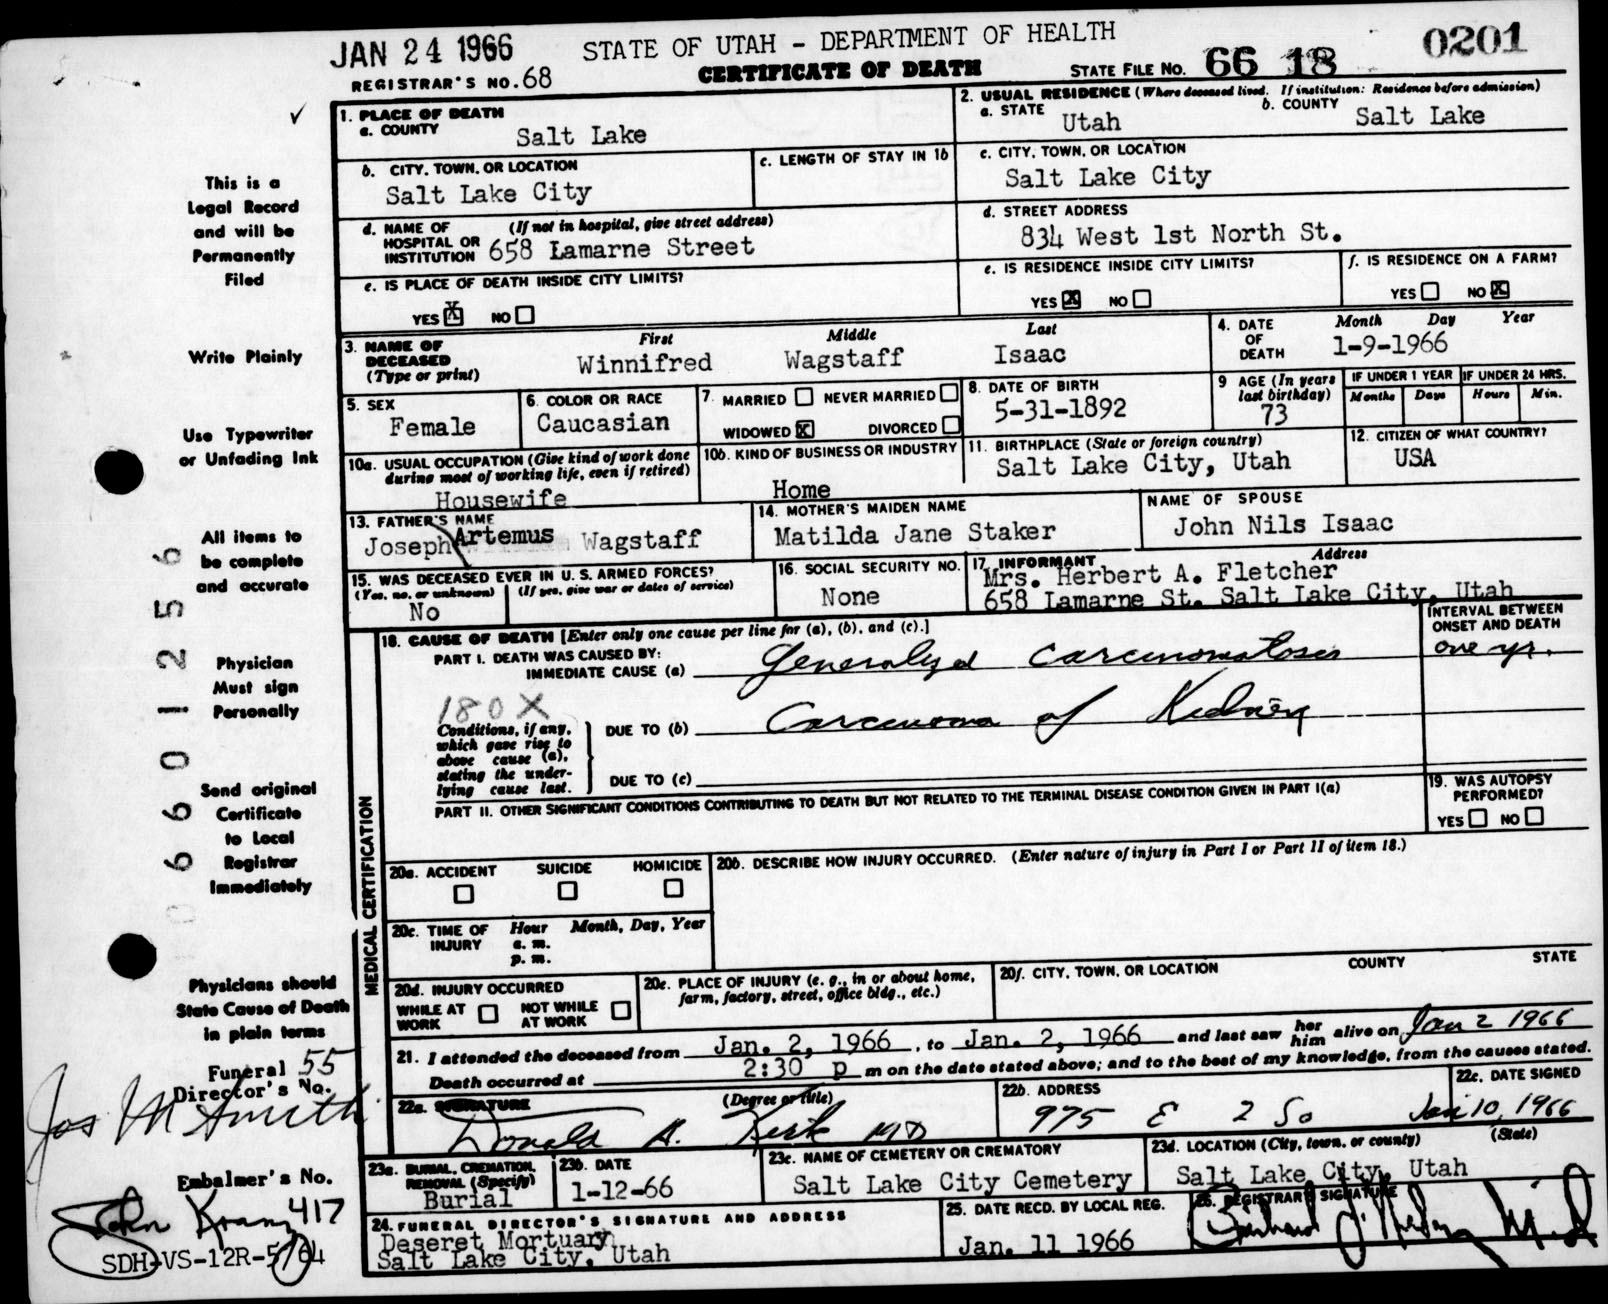 JAN 24 1966
STATE OF UTAH - DEPARTMENT OF HEALTH
0201
REGISTRAR'S NO. 68
CERTIFICATE OF DEATH
STATE FILE NO. 66 18
1. PLACE OF DEATH
a. COUNTY
Salt Lake
2. USUAL RESIDENCE (Where deceased lived. If institution: Residence before admission)
a. STATE
Utah
b. COUNTY
Salt Lake
b. CITY, TOWN, OR LOCATION
Salt Lake City
c. LENGTH OF STAY IN 1b
c. CITY, TOWN, OR LOCATION
Salt Lake City
d. NAME OF HOSPITAL OR INSTITUTION
(If not in hospital, give street address)
658 Lamarne Street
d. STREET ADDRESS
834 West 1st North St.
e. IS PLACE OF DEATH INSIDE CITY LIMITS?
YES X NO
e. IS RESIDENCE INSIDE CITY LIMITS?
YES X NO
f. IS RESIDENCE ON A FARM?
YES NO X
3. NAME OF DECEASED
(Type or print)
First Middle Last
Winnifred Wagstaff Isaac
4. DATE OF DEATH
Month Day Year
1-9-1966
5. SEX
Female
6. COLOR OR RACE
Caucasian
7. MARRIED NEVER MARRIED
WIDOWED X DIVORCED
8. DATE OF BIRTH
5-31-1892
9 AGE (In years last birthday)
73
IF UNDER 1 YEAR
Months Days
IF UNDER 24 HRS.
Hours Min.
10a. USUAL OCCUPATION (Give kind of work done during most of working life, even if retired)
Housewife
10b. KIND OF BUSINESS OR INDUSTRY
Home
11. BIRTHPLACE (State or foreign country)
Salt Lake City, Utah
12. CITIZEN OF WHAT COUNTRY?
USA
13. FATHER'S NAME
Joseph Artemus Wagstaff
14. MOTHER'S MAIDEN NAME
Matilda Jane Staker
NAME OF SPOUSE
John Nils Isaac
15. WAS DECEASED EVER IN U. S. ARMED FORCES?
(Yes, no, or unknown) (If yes, give war or dates of service)
No
16. SOCIAL SECURITY NO.
None
17. INFORMANT Address
Mrs. Herbert A. Fletcher
658 Lamarne St. Salt Lake City, Utah
18. CAUSE OF DEATH [Enter only one cause per line for (a), (b), and (c).]
INTERVAL BETWEEN ONSET AND DEATH
PART I. DEATH WAS CAUSED BY:
IMMEDIATE CAUSE (a) Generalized Carcinomatosis
one yr.
180X
Conditions, if any, which gave rise to above cause (a), stating the underlying cause last.
DUE TO (b) Carcinoma of Kidney
DUE TO (c)
PART II. OTHER SIGNIFICANT CONDITIONS CONTRIBUTING TO DEATH BUT NOT RELATED TO THE TERMINAL DISEASE CONDITION GIVEN IN PART I(a)
19. WAS AUTOPSY PERFORMED?
YES NO
MEDICAL CERTIFICATION
20a. ACCIDENT SUICIDE HOMICIDE
20b. DESCRIBE HOW INJURY OCCURRED. (Enter nature of injury in Part I or Part II of item 18.)
20c. TIME OF INJURY
Hour Month, Day, Year
a. m.
p. m.
20d. INJURY OCCURRED
WHILE AT WORK NOT WHILE AT WORK
20e. PLACE OF INJURY (e. g., in or about home, farm, factory, street, office bldg., etc.)
20f. CITY, TOWN, OR LOCATION COUNTY STATE
21. I attended the deceased from Jan. 2, 1966, to Jan. 2, 1966 and last saw her him alive on Jan 2 1966
Death occurred at 2:30 p m on the date stated above; and to the best of my knowledge, from the causes stated.
22a. SIGNATURE (Degree or title)
Donald A. Kirk MD
22b. ADDRESS
975 E 2 So
22c. DATE SIGNED
Jan 10, 1966
23a. BURIAL, CREMATION, REMOVAL (Specify)
Burial
23b. DATE
1-12-66
23c. NAME OF CEMETERY OR CREMATORY
Salt Lake City Cemetery
23d. LOCATION (City, town, or county) (State)
Salt Lake City, Utah
24. FUNERAL DIRECTOR'S SIGNATURE AND ADDRESS
Deseret Mortuary
Salt Lake City, Utah
25. DATE RECD. BY LOCAL REG.
Jan. 11 1966
26. REGISTRAR'S SIGNATURE
This is a
Legal Record
and will be
Permanently
Filed
Write Plainly
Use Typewriter
or Unfading Ink
All items to
be complete
and accurate
Physician
Must sign
Personally
Send original
Certificate
to Local
Registrar
Immediately
Physicians should
State Cause of Death
in plain terms
Funeral 55
Director's No.
Jos M Smith
Embalmer's No.
John Kranz 417
SDH-VS-12R-5/64
6 6 0 1 2 5 6